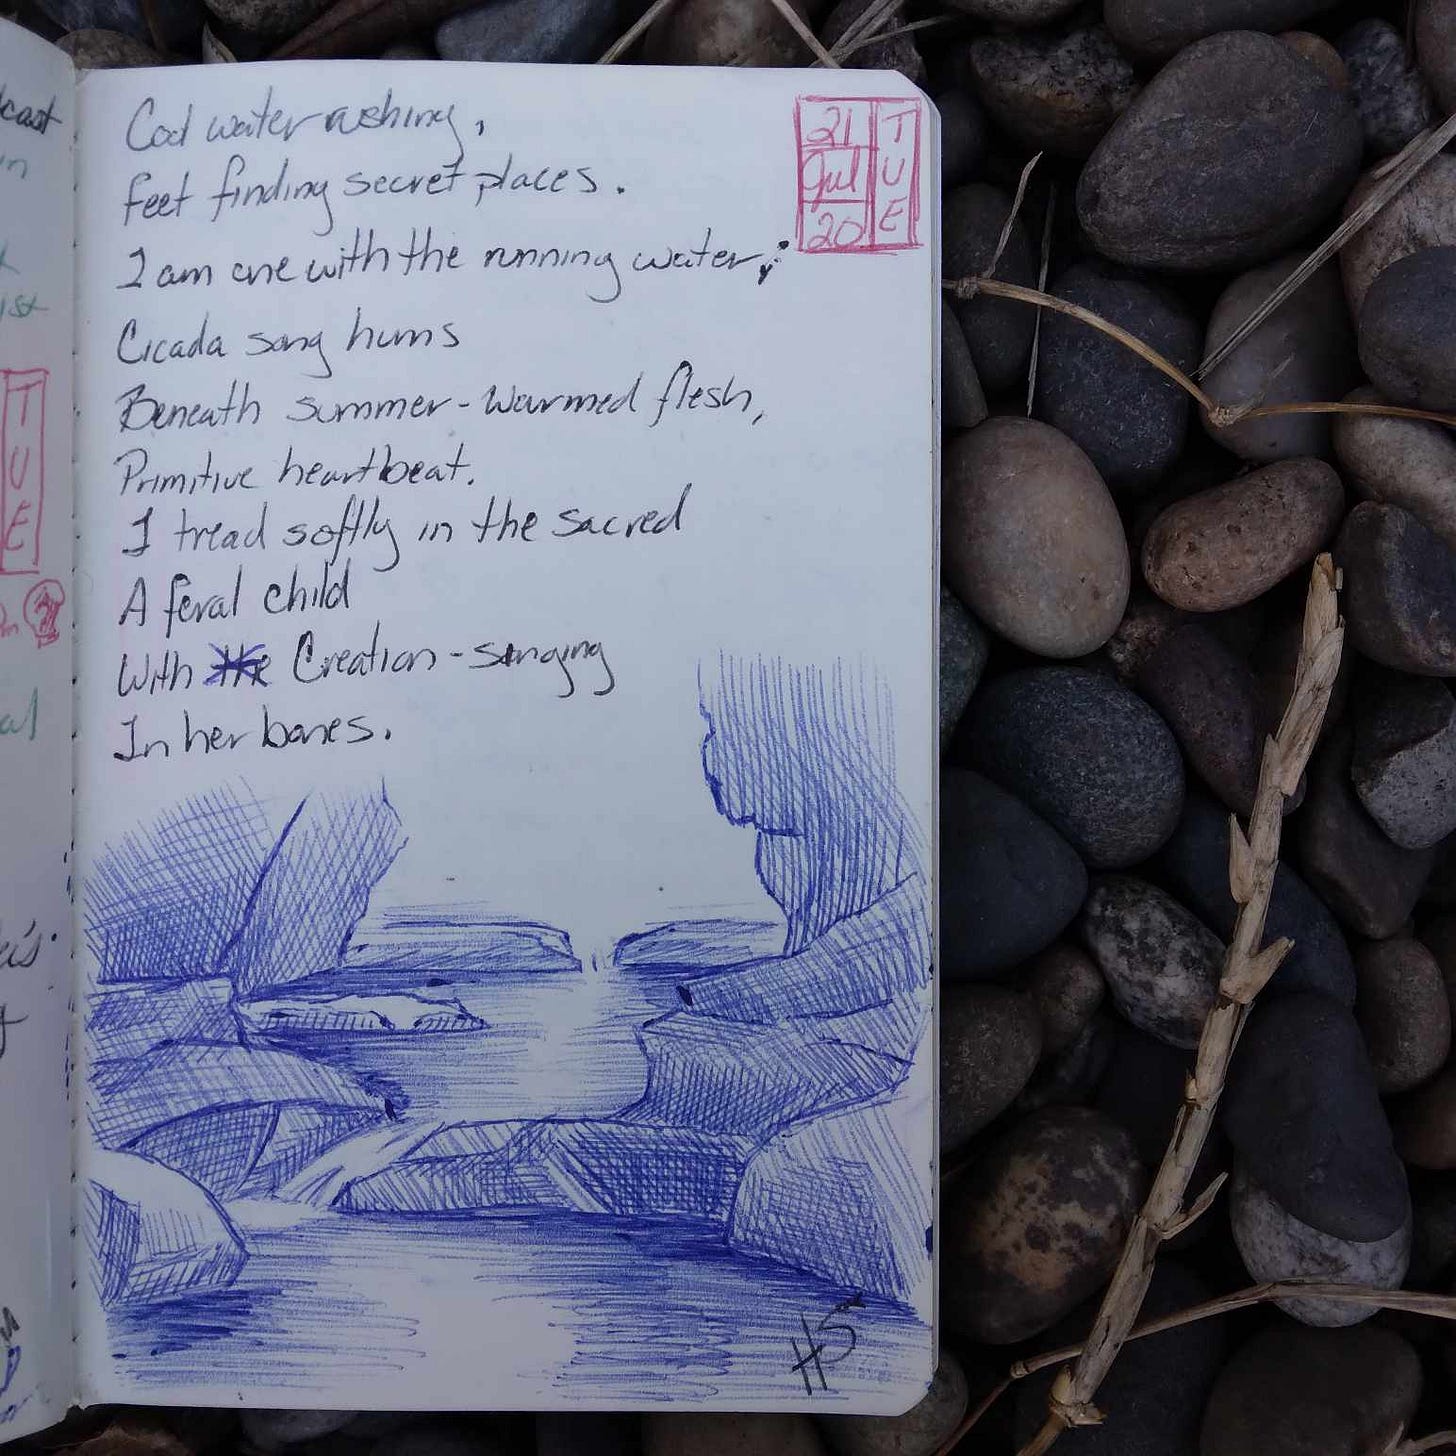 cast
in
ist
TUE
m
al
is.
Cool water rushing,
feet finding secret places.
I am one with the running water;
Cicada song hums
Beneath summer-warmed flesh,
Primitive heartbeat.
I tread softly in the sacred
A feral child
With the Creation-singing
In her bones.
21
Jul
20
TUE
HS